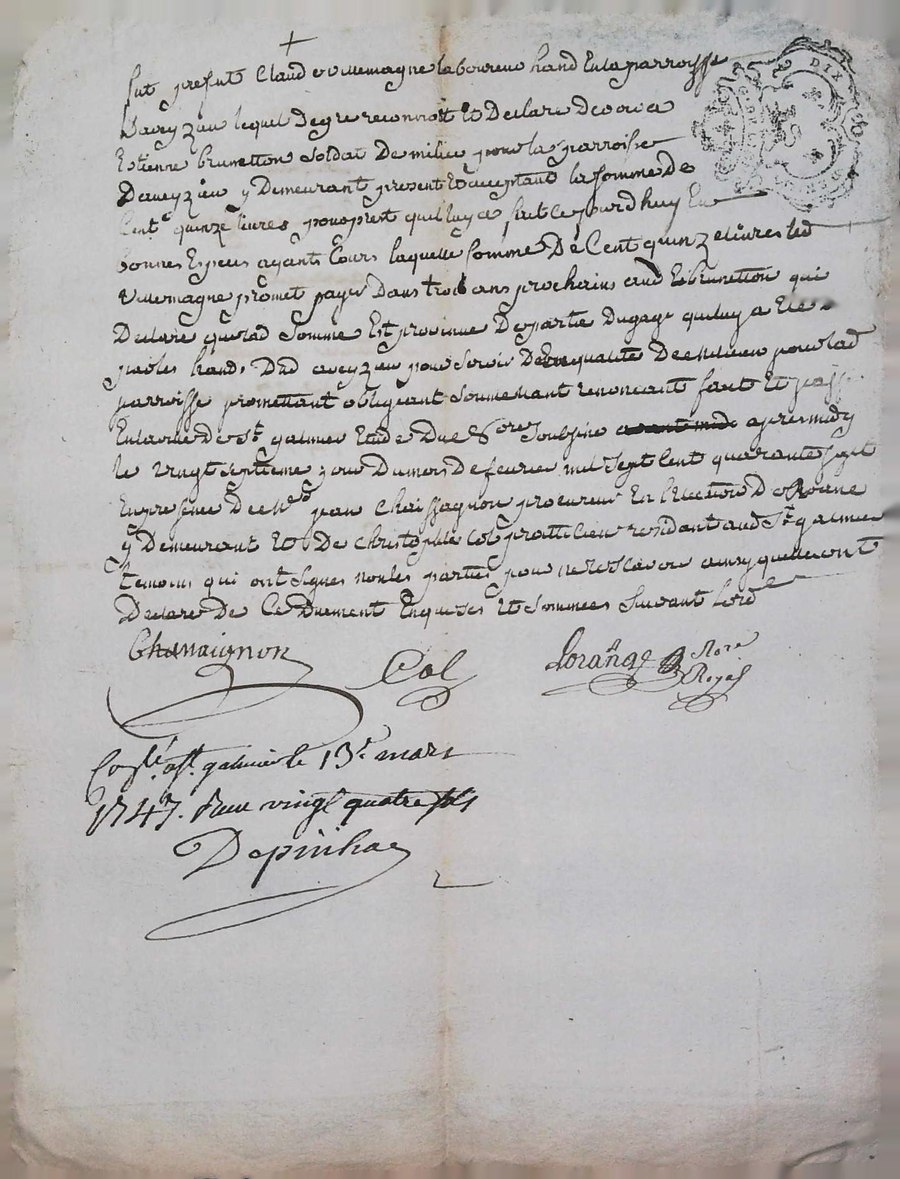 fut present Claude Villemagne laboureur habit En la parroisse
Daveyzieu lequel de gre reconnoit Et Declare Devoir a
Estienne brunetton Soldat De milice pour la parroisse
Daveyzieu y Demeurant present Et acceptant la somme de
Cent quinze livres pour prest quil luy a fait ce jourdhuy En
bonnes Especes ayants Cours laquelle somme De Cent quinze livres led
villemagne promet payer Dans trois ans prochains aud brunetton qui
Declare que lad Somme Est provenue De partie Du gage qui luy a Ete
par les habit. Dud aveyzieu pour Servir En qualite De milicien pour lad
parroisse promettant obligeant Soumettant renoncant fait Et passe
En la ville De St galmier Etude Du Nore Soussigne avant midi apres midy
le vingt septieme jour Du mois De fevrier mil Sept Cent quarante sept
En presence De Me jean Chassaignon procureur En Election De Roanne
y Demeurant Et De Christophle Col pratticien residant aud St galmier
temoins qui ont Signes non les parties pour ne le scavoir ainsy quelle ont
Declare De Ce Duement Enquises Et Sommees Suivant lord
Chassaignon
Col
Lorange Nore
Royal
DIX
Conlé a St galmier le 13e mars
1747. Reçu vingt quatre sols
Depinhac